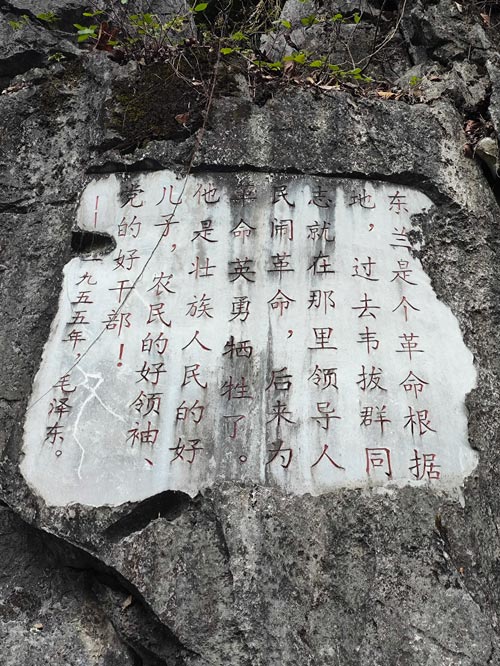 东兰是个革命根据
地，过去韦拔群同
志就在那里领导人
民闹革命，后来为
革命英勇牺牲了。
他是壮族人民的好
儿子，农民的好领袖、
党的好干部！
——一九五五年，毛泽东。